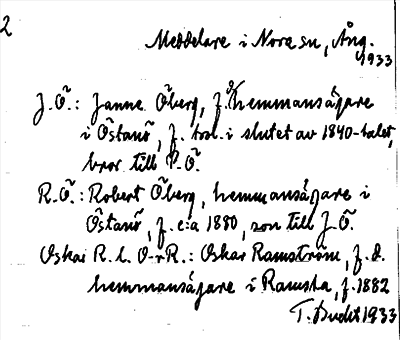 2
Meddelare i Nora sn, Ång.
1933
J. Ö.: Janne Öberg, f. hemmansägare
i Östanö, f. tro. i slutet av 1840-talet,
bror till P. Ö.
R. Ö.: Robert Öberg, hemmansägare i
Östanö, f. c:a 1880, son till J. Ö.
Oskar R. l. O-r R.: Oskar Ramström, f. d.
hemmansägare i Ramsta, f. 1882
T. 1933